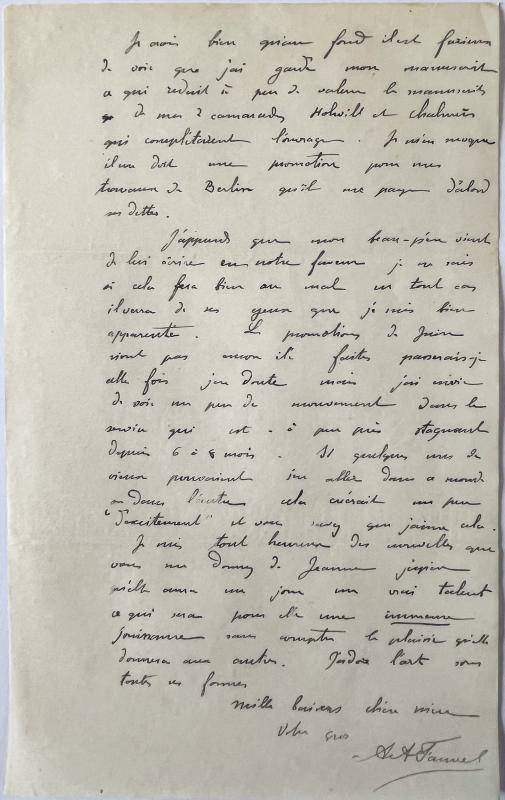 Je crois bien qu'au fond il est furieux
de voir que j'ai gardé mon manuscrit
ce qui réduit à peu de valeur les manuscrits
de mes 2 camarades Holwill et Chalmers
qui complétaient l'ouvrage. Je m'en moque
il me doit une promotion pour mes
travaux de Berlin qu'il me paye d'abord
ses dettes.
J'apprends que mon beau-père vient
de lui écrire en notre faveur je ne sais
si cela fera bien ou mal en tout cas
il verra de ses yeux que je suis bien
apparenté. Les promotions de Juin
n'ont pas encore été faites passerais-je
cette fois j'en doute mais j'ai envie
de voir un peu de mouvement dans le
service qui est à peu près stagnant
depuis 6 à 8 mois. Si quelques uns de
vieux pouvaient s'en aller dans ce monde
ou dans l'autre cela créerait un peu
"d'excitement" et vous savez que j'aime cela.
Je suis tout heureux des nouvelles que
vous me donnez de Jeanne j'espère
qu'elle aura un jour un vrai talent
ce qui sera pour elle une immense
jouissance sans compter le plaisir qu'elle
donnera aux autres. J'adore l'art sous
toutes ses formes
Mille baisers chère mère
Votre gros
A. A. Fauvel